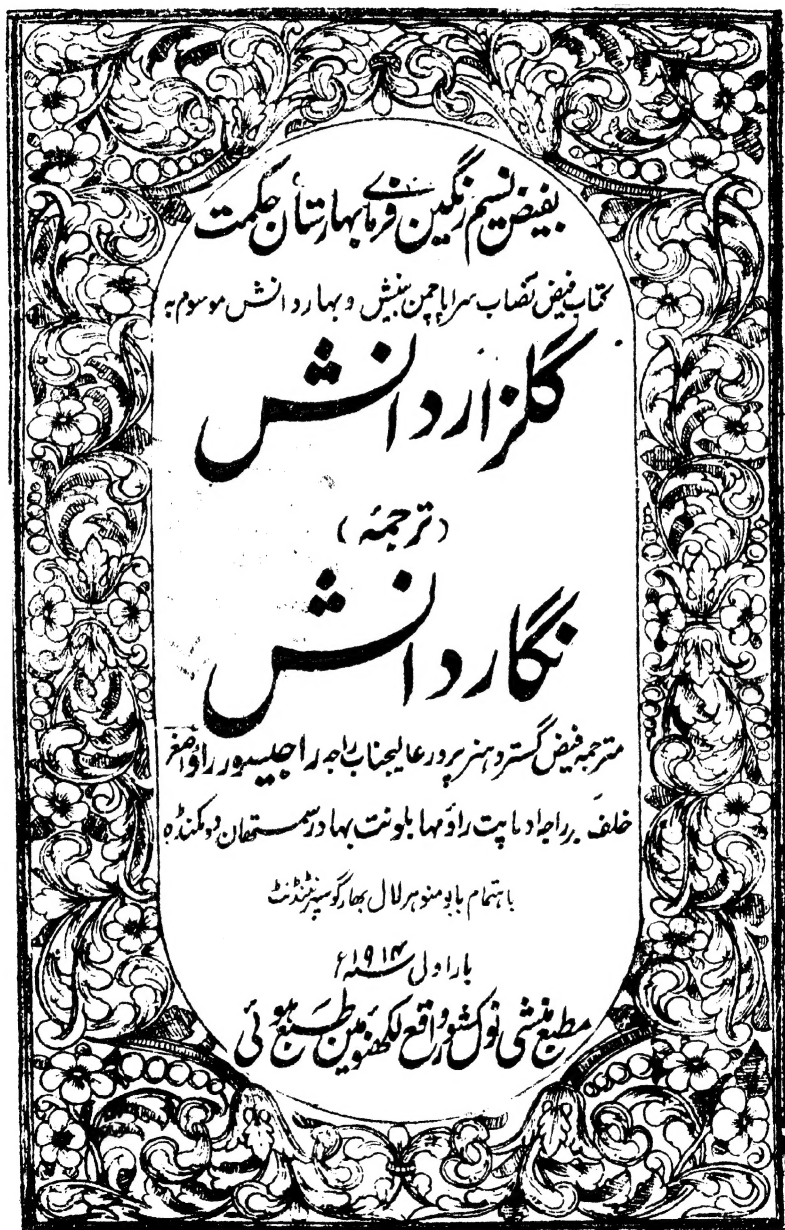 بفیض نسیم رنگین فرمای بہارستان حکمت
کتاب فیض نصاب سراپا چمن بینش و بہار دانش موسوم بہ
گلزار دانش
(ترجمۂ)
نگار دانش
مترجمہ فیض گستر و ہنر پرور عالیجناب راجہ راجیسور راؤ اصغر
خلف راجہ ادماپت راؤ مہابلونت بہادر سمستھان دومکنڈہ
باہتمام بابو منوہر لال بھارگو سپرنٹنڈنٹ
بار اول سنہ ۱۹۱۴ء
مطبع منشی نولکشور واقع لکھنؤ مین طبع ہوئی